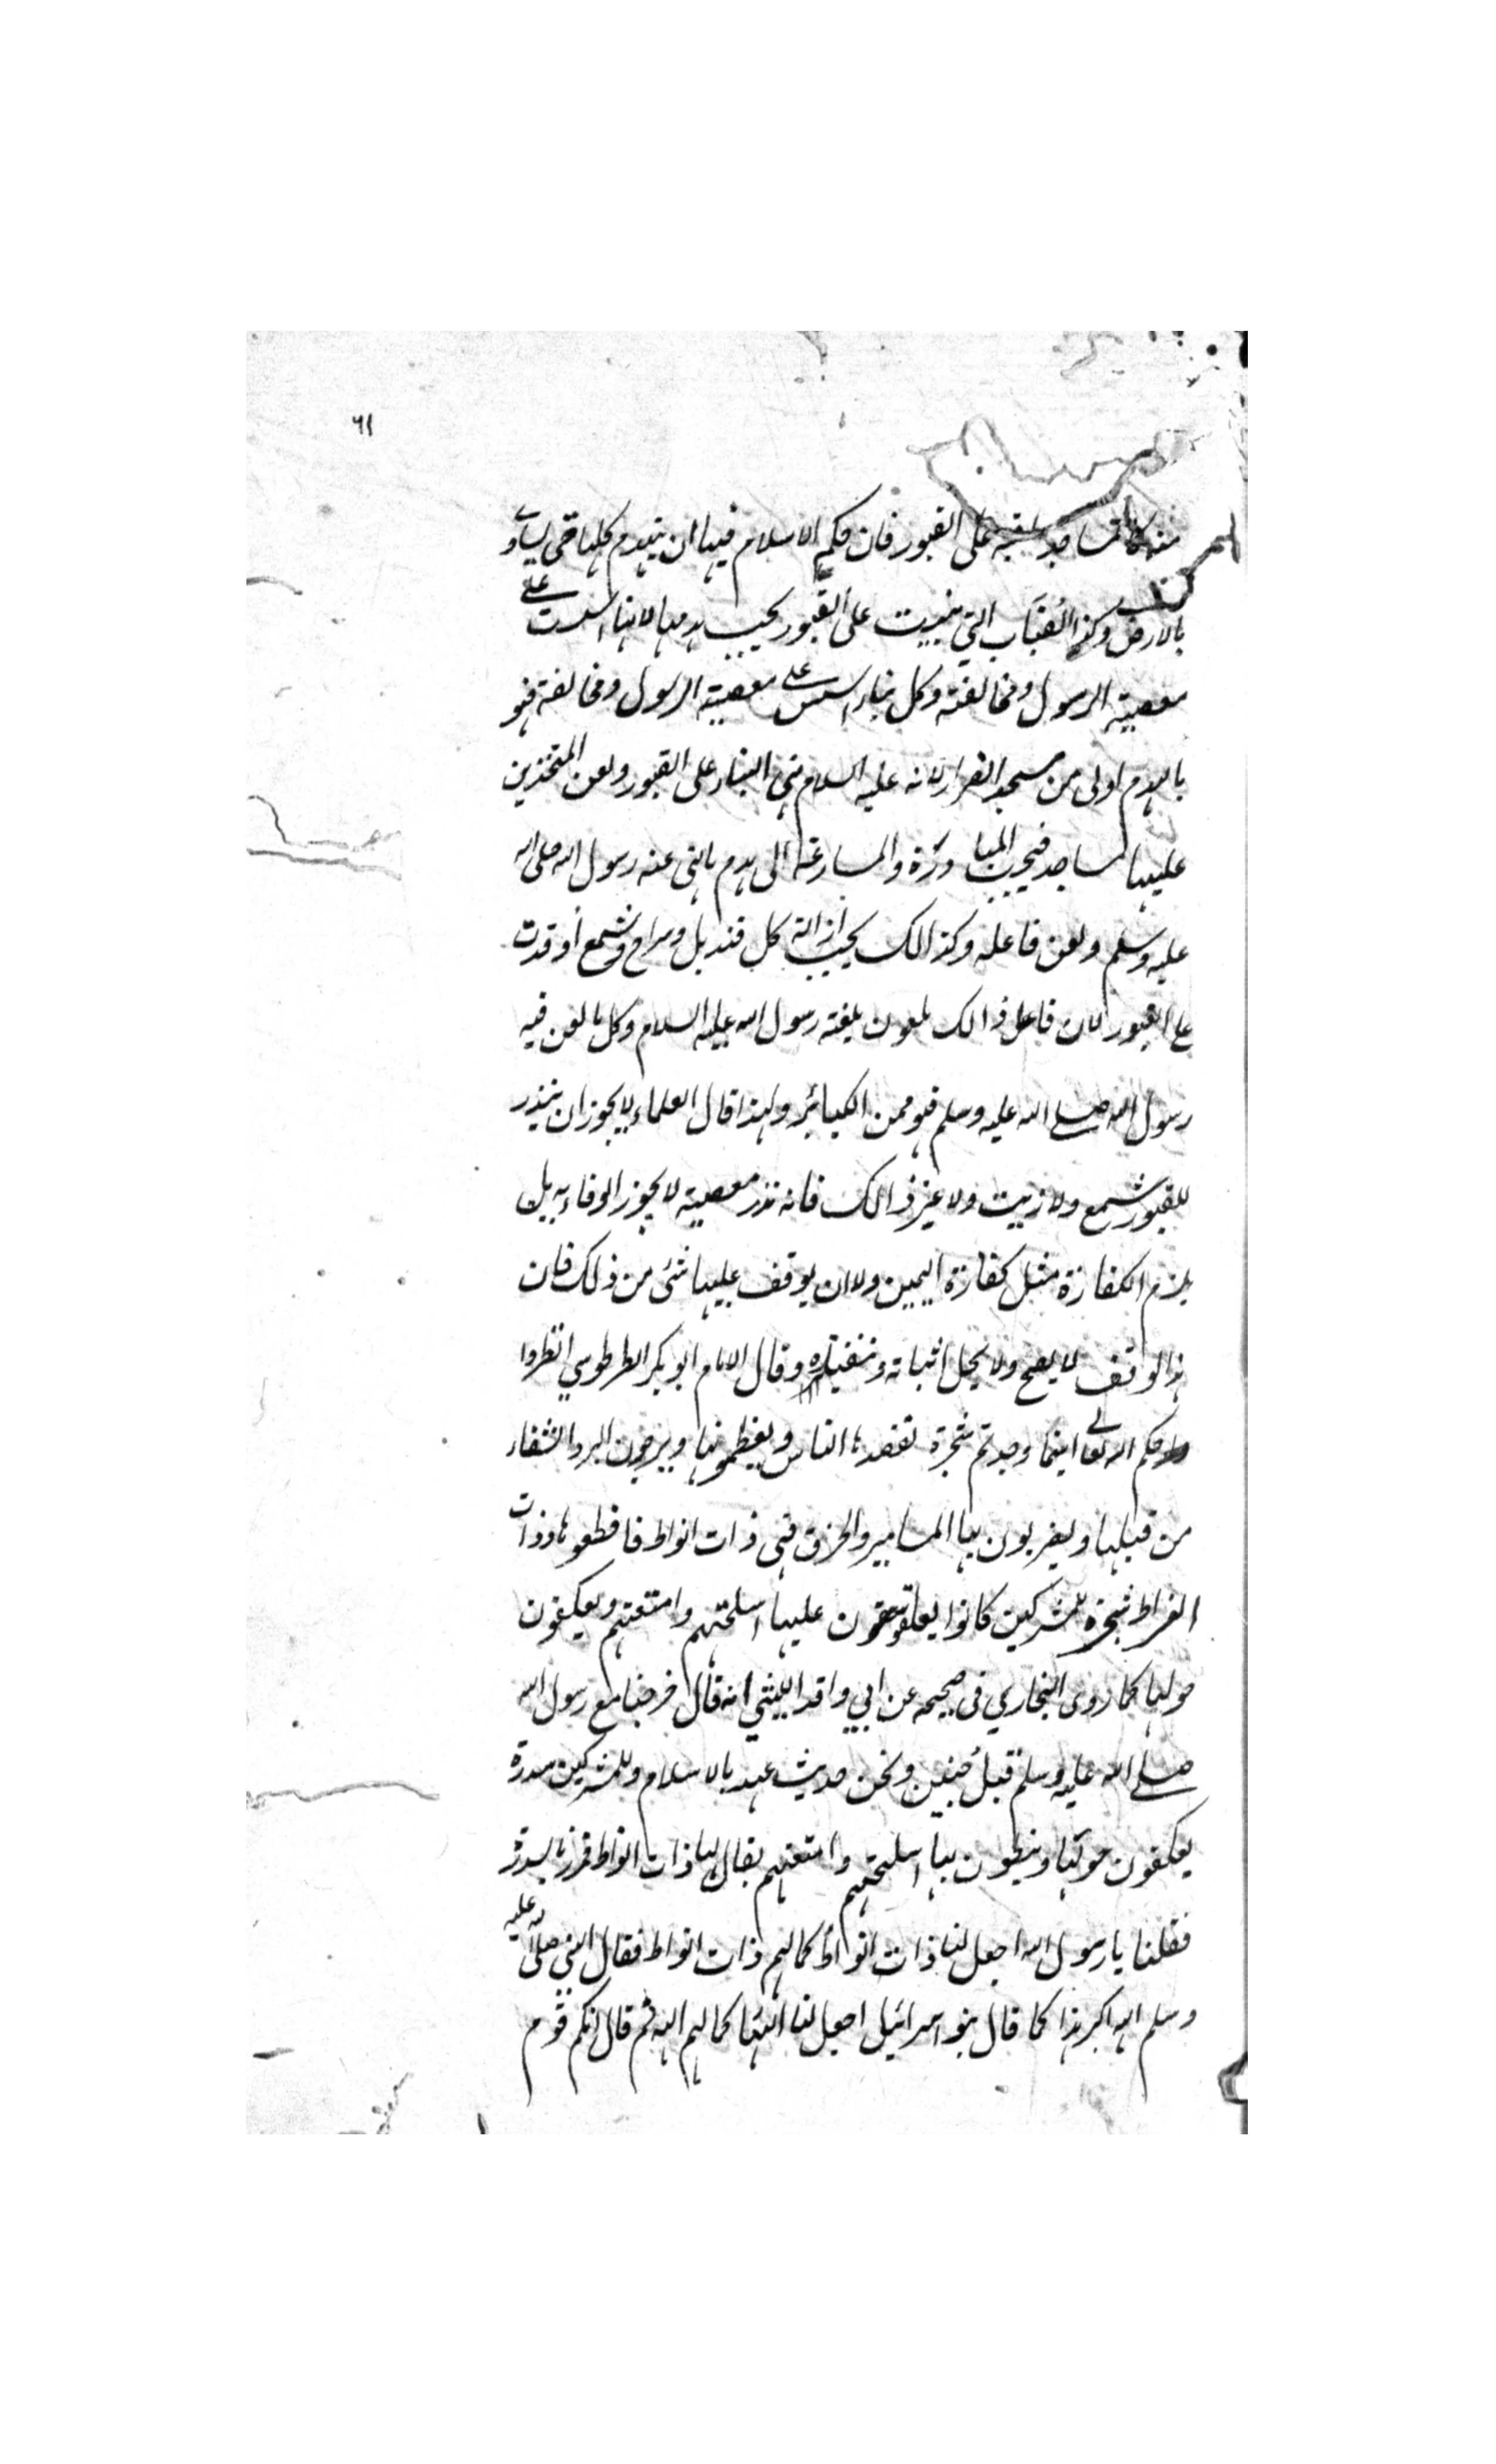 ٦١
منه كالمساجد المبنية على القبور فان حكم الاسلام فيها ان يهدم كلها حتى يساوى
بالارض وكذا القباب التي بنيت على القبور يجب هدمها لانها اسست على
معصية الرسول ومخالفته وكل بناء اسس على معصية الرسول ومخالفته فهو
بالهدم اولى من مسجد الضرار لانه عليه السلام نهى البناء على القبور ولعن المتخذين
عليها مساجد فيجب المبادرة والمسارعة الى هدم ما نهى عنه رسول الله صلى الله
عليه وسلم ولعن فاعله وكذالك يجب ازالة كل قنديل وسراج وشمع أوقدت
على القبور لان فاعل ذالك ملعون بلعنة رسول الله عليه السلام وكل ما لعن فيه
رسول الله صلى الله عليه وسلم فهو من الكبائر ولهذا قال العلماء لا يجوز ان ينذر
للقبور شمع ولا زيت ولا غير ذالك فانه نذر معصية لا يجوز الوفاء به بل
يلزم الكفارة مثل كفارة اليمين ولا ان يوقف عليها شئ من ذلك فان
هذا الوقف لا يصح ولا يحل اثباته وتنفيذه وقال الامام ابو بكر الطرطوسي انظروا
رحمكم الله تعالى اينما وجدتم شجرة تقصدها الناس ويعظمونها ويرجون البرء والشفاء
من قبلها ويضربون بها المسامير والخرق فهي ذات انواط فاقطعوها وذات
انواط شجرة للمشركين كانوا يعلقون عليها اسلحتهم وامتعتهم ويعكفون
حولها كما روى البخاري في صحيحه عن ابي واقد الليثي انه قال خرجنا مع رسول الله
صلى الله عليه وسلم قبل حنين ونحن حديث عهد بالاسلام وللمشركين سدرة
يعكفون حولها وينوطون بها اسلحتهم وامتعتهم يقال لها ذات انواط فمررنا بسدرة
فقلنا يا رسول الله اجعل لنا ذات انواط كما لهم ذات انواط فقال النبي صلى الله عليه
وسلم الله اكبر هذا كما قال بنو اسرائيل اجعل لنا الها كما لهم الهة ثم قال انكم قوم